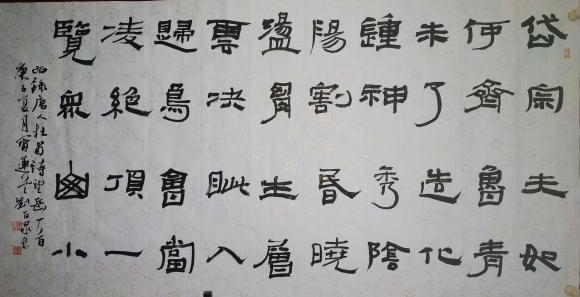 岱宗夫如
何齊魯青
未了造化
鍾神秀陰
陽割昏曉
盪胷生層
雲決眦入
歸鳥會當
凌絕頂一
覽衆山小
錄唐人杜甫詩望岳一首
庚子夏月